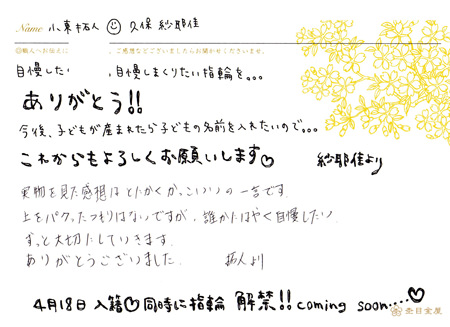 Name 小東 拓人 ☺ 久保 紗耶佳
ご感想などございましたらお聞かせくださいませ。
自慢したい 自慢しまくりたい指輪を。。。
ありがとう!!
今後、子どもが産まれたら子どもの名前を入れたいので。。。
これからもよろしくお願いします♡ 紗耶佳より
実物を見た感想はとにかくかっこいいの一言です。
上をパクったつもりはないですが、誰かにはやく自慢したい。
ずっと大切にしていきます。
ありがとうございました。 拓人より
4月18日 入籍♡同時に指輪 解禁!! coming soon....♡
杢目金屋